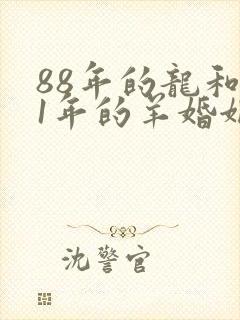 88年的龍和
1年的羊婚姻
沈警官